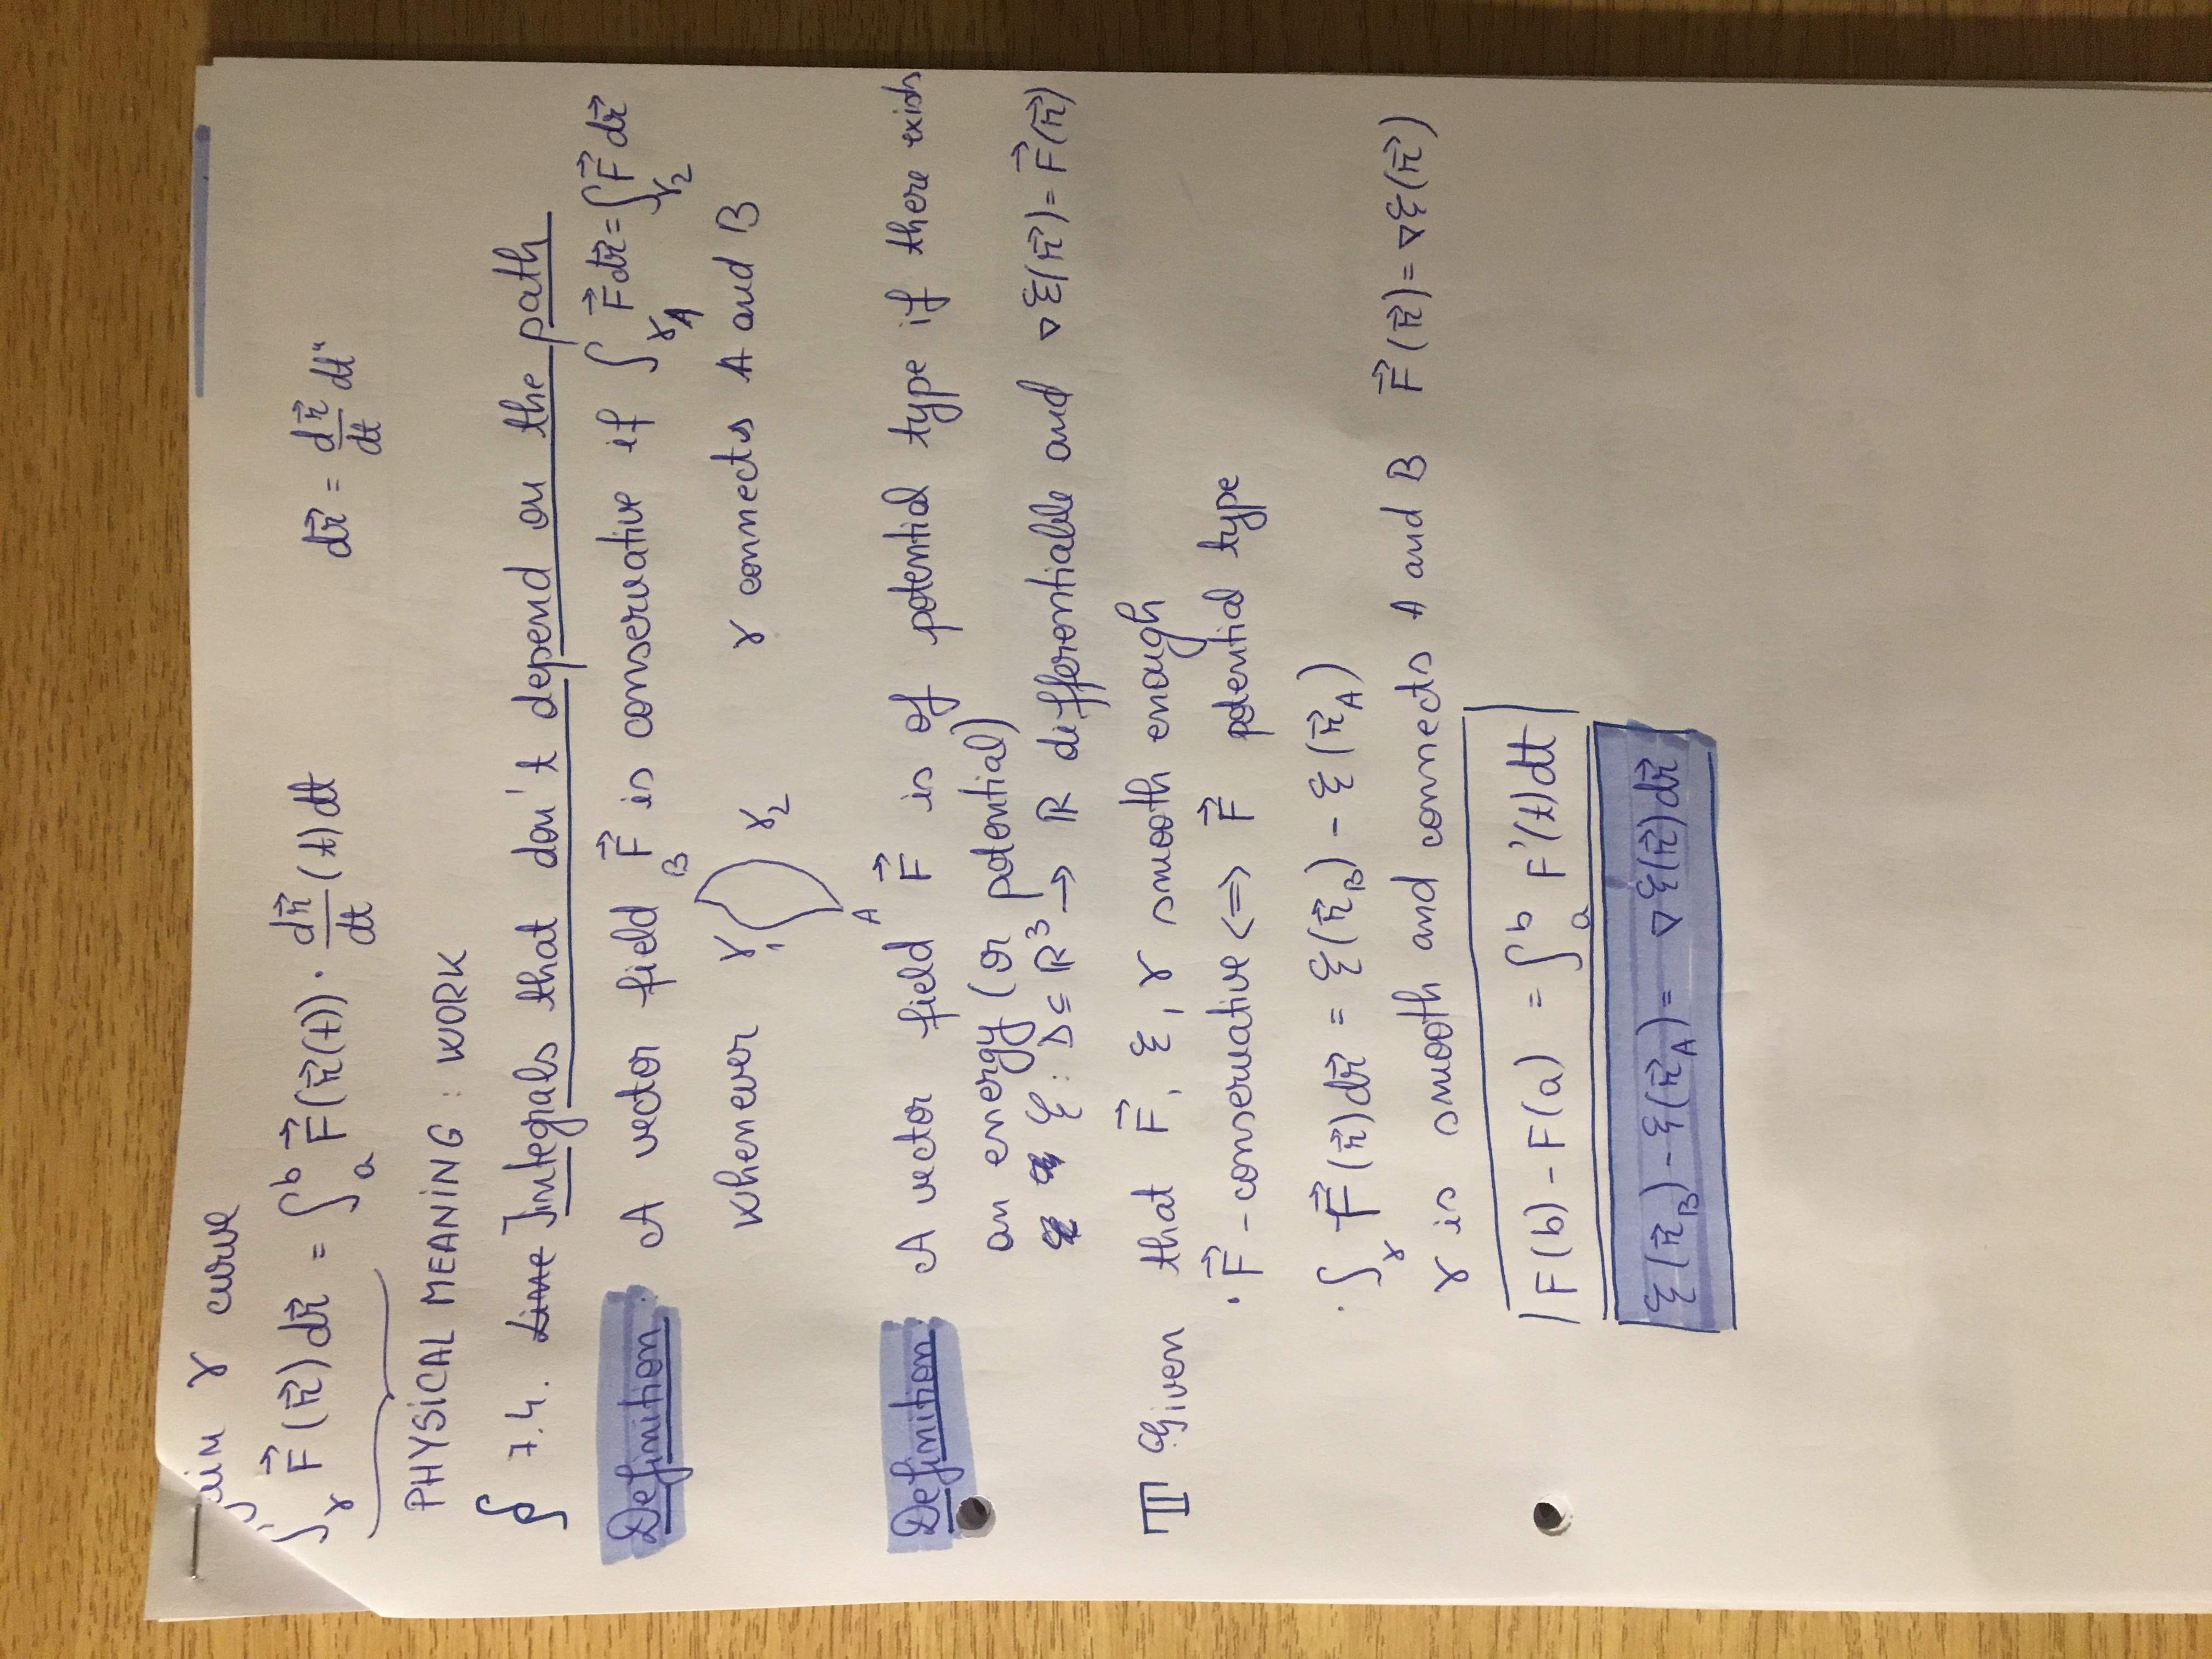 γ curve
∫_γ F⃗(r⃗)dr⃗ = ∫_a^b F⃗(r⃗(t)) · dr⃗/dt (t)dt    dr⃗ = dr⃗/dt dt"
PHYSICAL MEANING : WORK
§ 7.4. ~~Line~~ Integrals that don't depend on the path
Definition: A vector field F⃗ is conservative if ∫_γ_1 F⃗dr⃗ = ∫_γ_2 F⃗ dr⃗
B
whenever γ_1 γ_2 γ connects A and B
A
Definition: A vector field F⃗ is of potential type if there exists
an energy (or potential)
ℰ : D ⊆ ℝ³ → ℝ differentiable and ∇ℰ(r⃗) = F⃗(r⃗)
T Given that F⃗, ℰ, γ smooth enough
· F⃗ - conservative <=> F⃗ potential type
· ∫_γ F⃗(r⃗)dr⃗ = ℰ(r⃗_B) - ℰ(r⃗_A)
γ is smooth and connects A and B F⃗(r⃗) = ∇ℰ(r⃗)
F(b) - F(a) = ∫_a^b F'(t)dt
ℰ(r⃗_B) - ℰ(r⃗_A) = ∇ℰ(r⃗)dr⃗